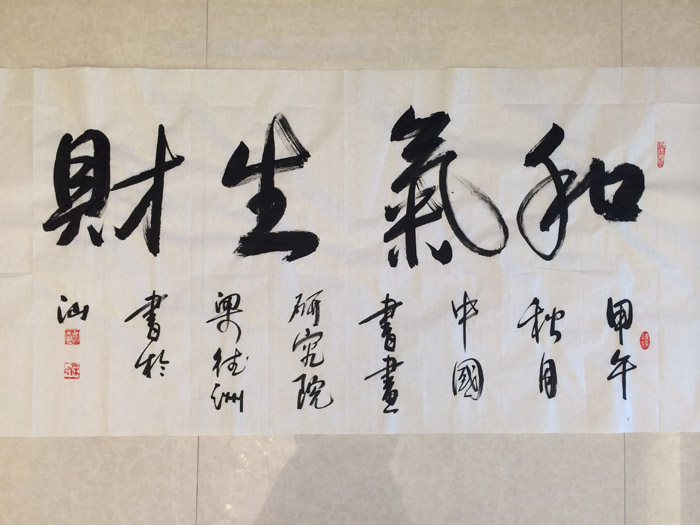 和氣生財
甲午
秋月
中國
書畫
研究院
梁德洲
書於
汕